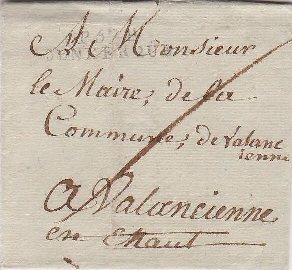 A Monsieur
le Maire, de la
Commune, de valanc
ienne
a Valancienne